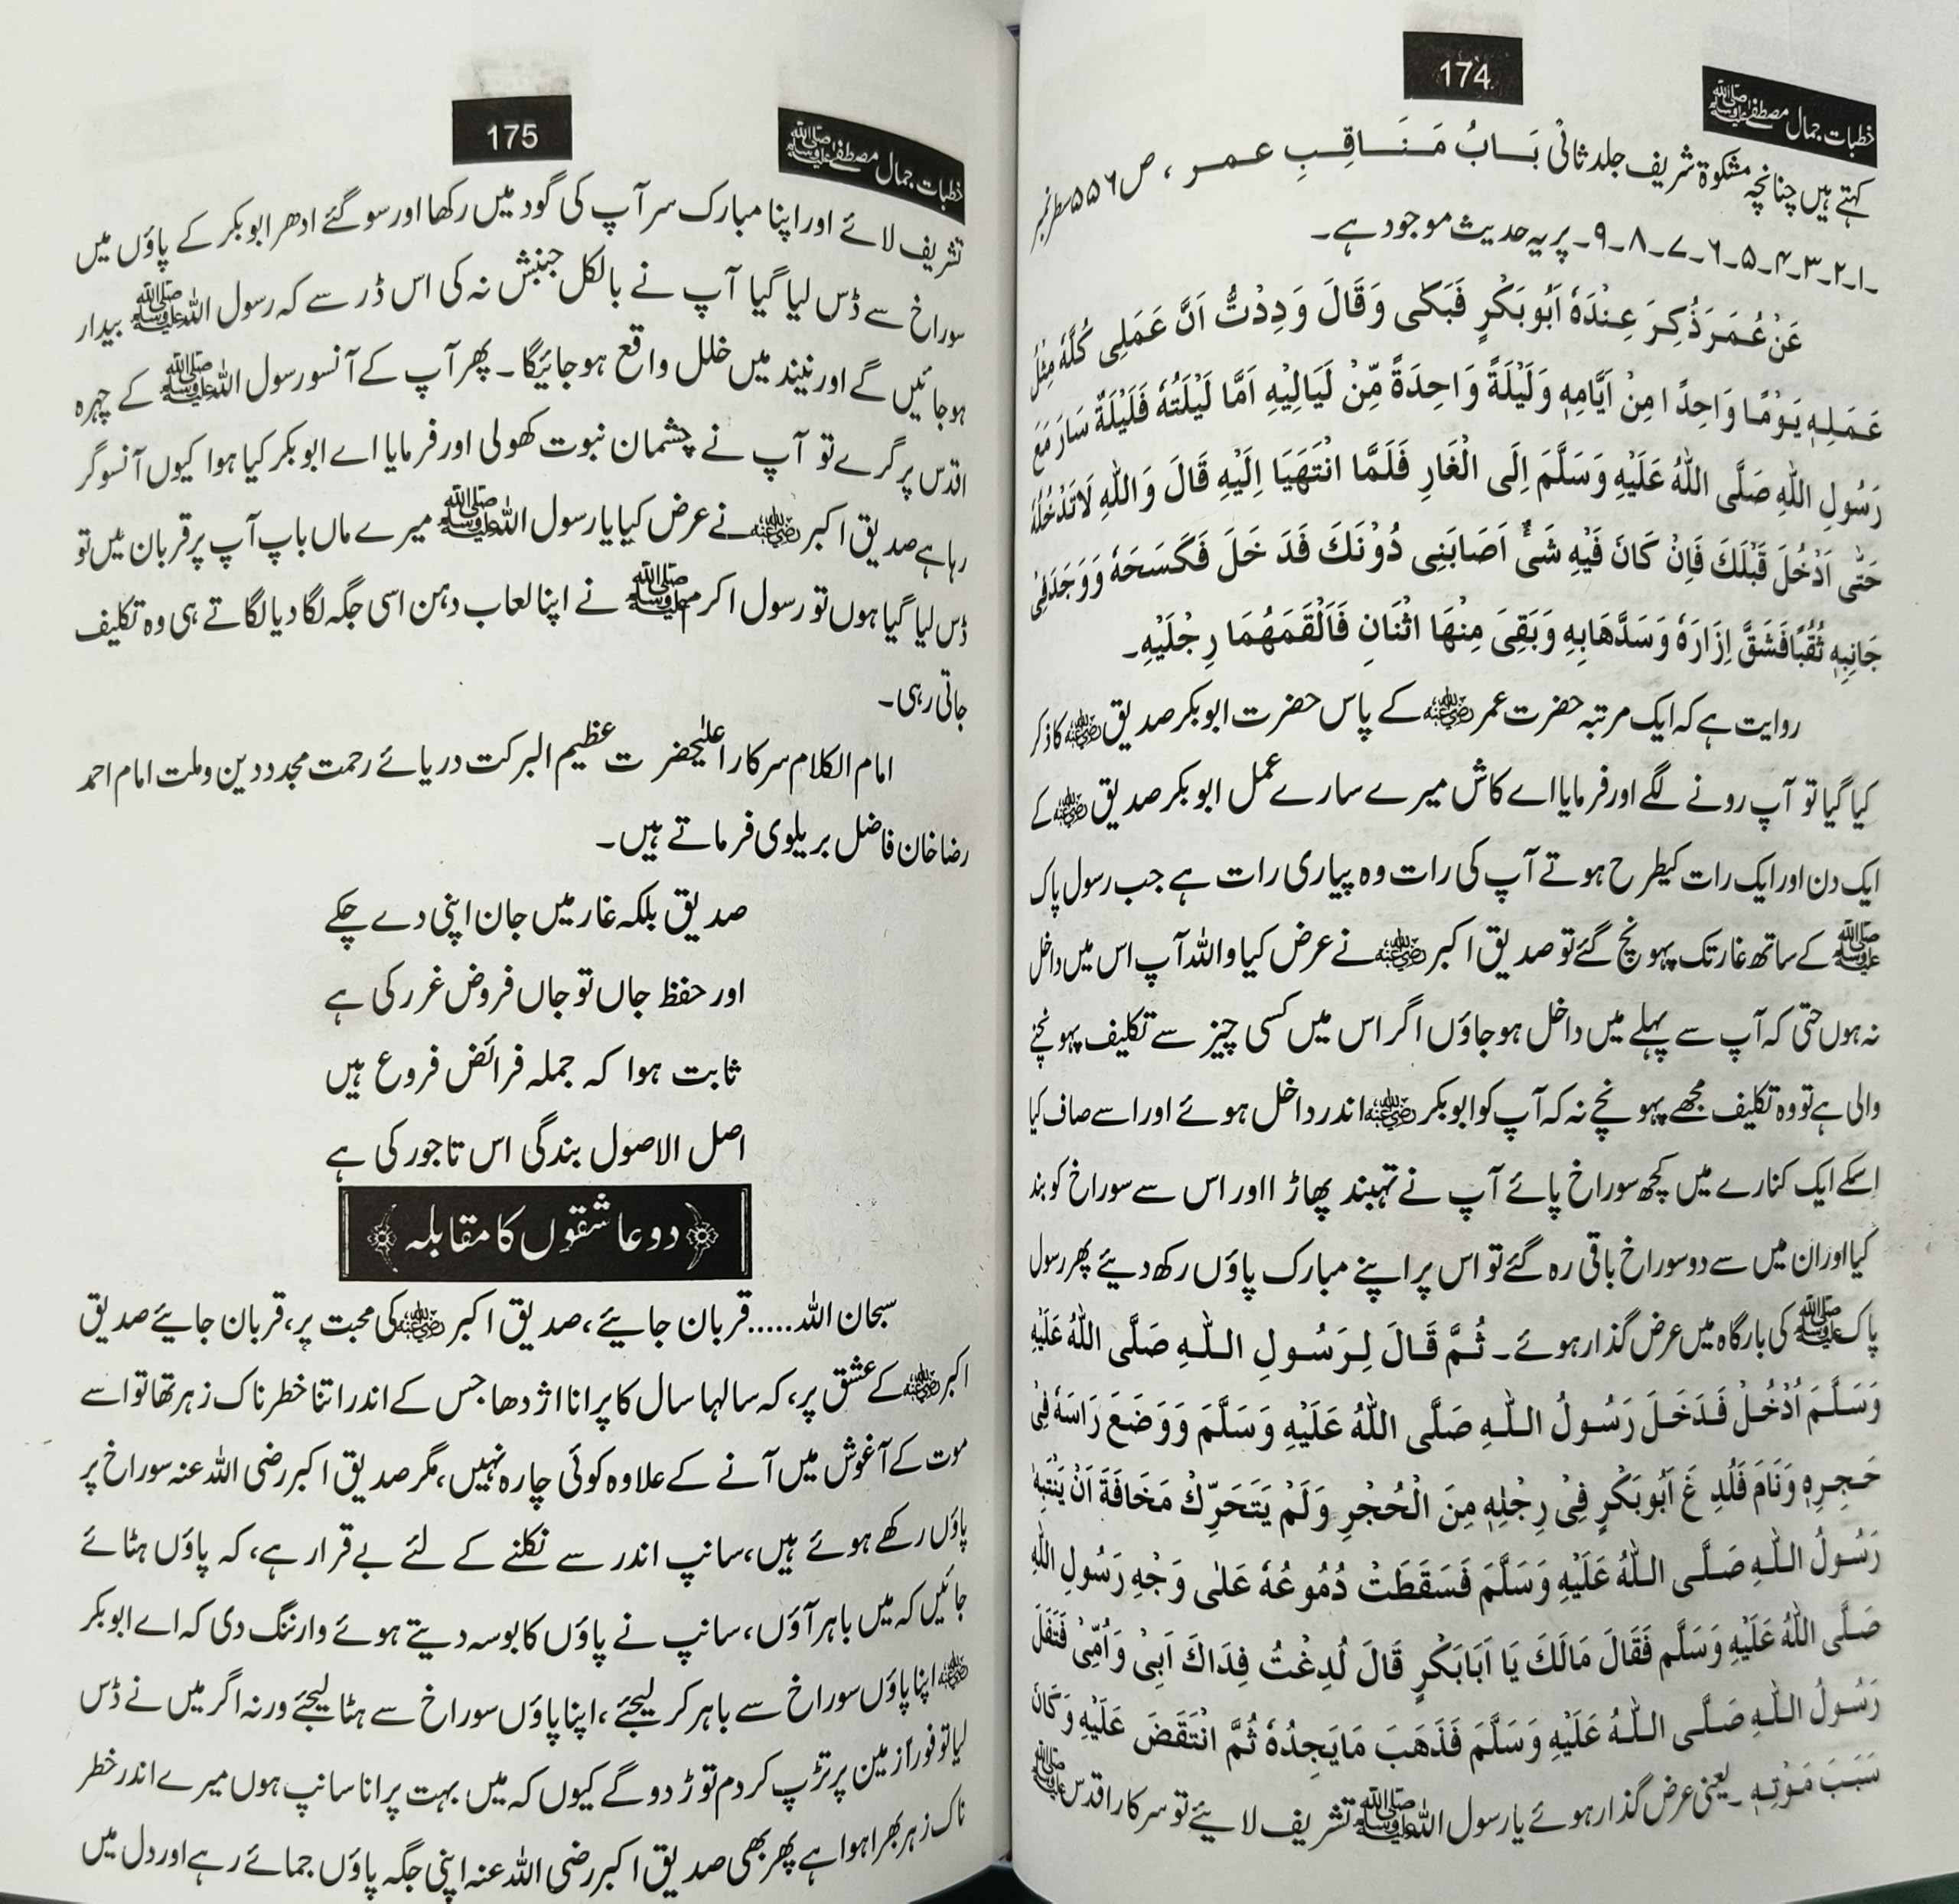 خطبات جمال مصطفےٰ ﷺ
174
کہتے ہیں چنانچہ مشکوۃ شریف جلد ثانی بَابُ مَنَاقِبِ عمر ، ص ۵۵۶ سطر نمبر
۔۱۔۲۔۳۔۴۔۵۔۶۔۷۔۸۔۹۔ پر یہ حدیث موجود ہے۔
عَنْ عُمَرَ ذُکِرَ عِنْدَہٗ اَبُوبَکْرٍ فَبَکٰی وَقَالَ وَدِدْتُّ اَنَّ عَمَلِی کُلَّہٗ مِثْلُ
عَمَلِہٖ یَوْمًا وَاحِدًا مِنْ اَیَّامِہٖ وَلَیْلَۃً وَاحِدَۃً مِّنْ لَیَالِیْہِ اَمَّا لَیْلَتُہٗ فَلَیْلَۃٌ سَارَ مَعَ
رَسُولِ اللہِ صَلَّی اللہُ عَلَیْہِ وَسَلَّمَ اِلَی الْغَارِ فَلَمَّا انْتَھَیَا اِلَیْہِ قَالَ وَاللہِ لَا تَدْخُلُہٗ
حَتّٰی اَدْخُلَ قَبْلَکَ فَاِنْ کَانَ فَیْہِ شَیْءٌ اَصَابَنِی دُوْنَکَ فَدَ خَلَ فَکَسَحَہٗ وَوَجَدَ فِیْ
جَانِبِہٖ ثُقُبًا فَشَقَّ اِزَارَہٗ وَسَدَّھَابِہٖ وَبَقِیَ مِنْھَا اثْنَانِ فَاَلْقَمَھُمَا رِجْلَیْہِ۔
روایت ہے کہ ایک مرتبہ حضرت عمر رضی اللہ عنہ کے پاس حضرت ابوبکر صدیق رضی اللہ عنہ کا ذکر
کیا گیا تو آپ رونے لگے اور فرمایا اے کاش میرے سارے عمل ابوبکر صدیق رضی اللہ عنہ کے
ایک دن اور ایک رات کیطرح ہوتے آپ کی رات وہ پیاری رات ہے جب رسول پاک
ﷺ کے ساتھ غار تک پہونچ گئے تو صدیق اکبر رضی اللہ عنہ نے عرض کیا واللہ آپ اس میں داخل
نہ ہوں حتی کہ آپ سے پہلے میں داخل ہو جاؤں اگر اس میں کسی چیز سے تکلیف پہونچنے
والی ہے تو وہ تکلیف مجھے پہونچے نہ کہ آپ کو ابوبکر رضی اللہ عنہ اندر داخل ہوئے اور اسے صاف کیا
اسکے ایک کنارے میں کچھ سوراخ پائے آپ نے تہبند پھاڑ ا اور اس سے سوراخ کو بند
کیا اور ان میں سے دو سوراخ باقی رہ گئے تو اس پر اپنے مبارک پاؤں رکھ دیئے پھر رسول
پاک ﷺ کی بارگاہ میں عرض گذار ہوئے۔ ثُمَّ قَالَ لِرَسُولِ اللہِ صَلَّی اللہُ عَلَیْہِ
وَسَلَّمَ اُدْخُلْ فَدَخَلَ رَسُولُ اللہِ صَلَّی اللہُ عَلَیْہِ وَسَلَّمَ وَوَضَعَ رَاسَہٗ فِیْ
حَجِرِہٖ وَنَامَ فَلُدِ غَ اَبُوبَکْرٍ فِیْ رِجْلِہٖ مِنَ الْحُجْرِ وَلَمْ یَتَحَرِّکْ مَخَافَۃَ اَنْ یَنْتَبِہَ
رَسُولُ اللہِ صَلَّی اللہُ عَلَیْہِ وَسَلَّمَ فَسَقَطَتْ دُمُوعُہٗ عَلٰی وَجْہِ رَسُولِ اللہِ
صَلَّی اللہُ عَلَیْہِ وَسَلَّم فَقَالَ مَالَکَ یَا اَبَابَکْرٍ قَالَ لُدِغْتُ فِدَاکَ اَبِیْ وَاُمِّیْ فَتَفَلَ
رَسُولُ اللہِ صَلَّی اللہُ عَلَیْہِ وَسَلَّمَ فَذَھَبَ مَایَجِدُہٗ ثُمَّ انْتَقَضَ عَلَیْہِ وَکَانَ
سَبَبَ مَوْتِہٖ۔ یعنی عرض گذار ہوئے یا رسول اللہ ﷺ تشریف لایئے تو سرکار اقدس ﷺ
خطبات جمال مصطفےٰ ﷺ
175
تشریف لائے اور اپنا مبارک سر آپ کی گود میں رکھا اور سو گئے ادھر ابوبکر کے پاؤں میں
سوراخ سے ڈس لیا گیا آپ نے بالکل جنبش نہ کی اس ڈر سے کہ رسول اللہ ﷺ بیدار
ہو جائیں گے اور نیند میں خلل واقع ہو جائیگا۔ پھر آپ کے آنسو رسول اللہ ﷺ کے چہرہ
اقدس پر گرے تو آپ نے چشمان نبوت کھولی اور فرمایا اے ابوبکر کیا ہوا کیوں آنسو گر
رہا ہے صدیق اکبر رضی اللہ عنہ نے عرض کیا یا رسول اللہ ﷺ میرے ماں باپ آپ پر قربان میں تو
ڈس لیا گیا ہوں تو رسول اکرم ﷺ نے اپنا لعاب دہن اسی جگہ لگا دیا لگاتے ہی وہ تکلیف
جاتی رہی۔
امام الکلام سرکار اعلیٰحضرت عظیم البرکت دریائے رحمت مجدد دین وملت امام احمد
رضا خان فاضل بریلوی فرماتے ہیں۔
صدیق بلکہ غار میں جان اپنی دے چکے
اور حفظ جاں تو جاں فروض غرر کی ہے
ثابت ہوا کہ جملہ فرائض فروع ہیں
اصل الاصول بندگی اس تاجور کی ہے
دو عاشقوں کا مقابلہ
سبحان اللہ.....قربان جایئے، صدیق اکبر رضی اللہ عنہ کی محبت پر، قربان جایئے صدیق
اکبر رضی اللہ عنہ کے عشق پر، کہ سالہا سال کا پرانا اژدھا جس کے اندر اتنا خطرناک زہر تھا تو اسے
موت کے آغوش میں آنے کے علاوہ کوئی چارہ نہیں، مگر صدیق اکبر رضی اللہ عنہ سوراخ پر
پاؤں رکھے ہوئے ہیں، سانپ اندر سے نکلنے کے لئے بے قرار ہے، کہ پاؤں ہٹائے
جائیں کہ میں باہر آؤں، سانپ نے پاؤں کا بوسہ دیتے ہوئے وارننگ دی کہ اے ابوبکر
رضی اللہ عنہ اپنا پاؤں سوراخ سے باہر کر لیجئے، اپنا پاؤں سوراخ سے ہٹا لیجئے ورنہ اگر میں نے ڈس
لیا تو فوراً زمین پر تڑپ کر دم توڑ دو گے کیوں کہ میں بہت پرانا سانپ ہوں میرے اندر خطر
ناک زہر بھرا ہوا ہے پھر بھی صدیق اکبر رضی اللہ عنہ اپنی جگہ پاؤں جمائے رہے اور دل میں